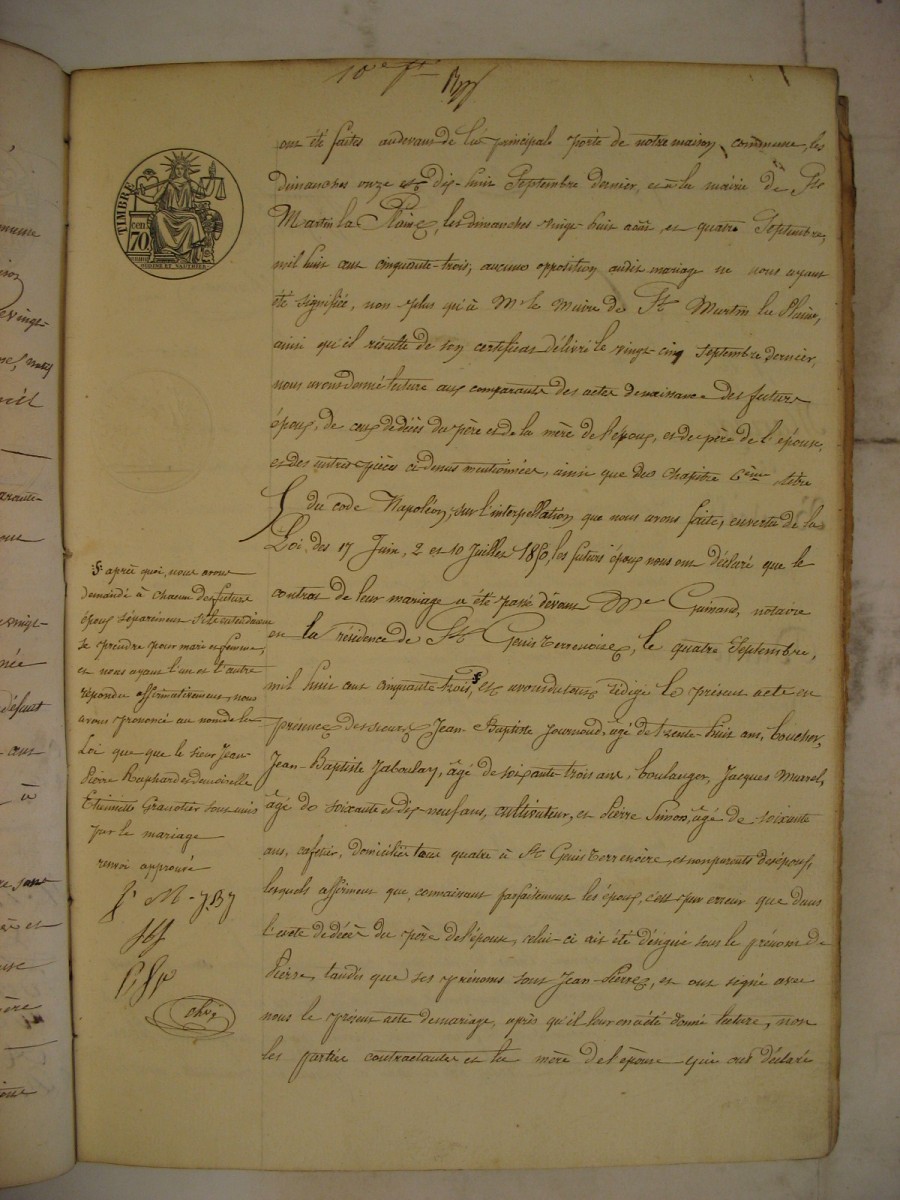 10e ft
TIMBRE
cen
70
ont été faites audevant de la principale porte de notre maison commune, les
dimanches onze et dix-huit Septembre dernier, et à la mairie de St
Martin la Plaine, les dimanches vingt-huit août, et quatre Septembre,
mil huit cent cinquante-trois, aucune opposition audit mariage ne nous ayant
été signifiée, non plus qu'à Mr le Maire de St Martin la Plaine,
ainsi qu'il résulte de son certificat délivré le vingt-cinq septembre dernier,
nous avons donné lecture aux comparants des actes de naissance des futurs
époux, de ceux de décès du père et de la mère de l'époux, et du père de l'épouse,
et des autres pièces ci dessus mentionnées, ainsi que du chapitre 6ème titre
5 du code Napoléon, sur l'interpellation que nous avons faite, en vertu de la
Loi des 17 Juin, 2 et 10 Juillet 1850, les futurs époux nous ont déclaré que le
contrat de leur mariage a été passé devant Me Guinand, notaire
en la résidence de St Genis Terrenoire, le quatre Septembre,
mil huit cent cinquante trois, et avons de tout rédigé le présent acte en
présence des sieurs Jean-Baptiste Journoud, âgé de trente-huit ans, boucher,
Jean-Baptiste Jaboulay, âgé de soixante trois ans, boulanger, Jacques Murrel,
âgé de soixante et dix-neuf ans, cultivateur, et Pierre Simon, âgé de soixante
ans, cafetier, domiciliés tous quatre à St Genis Terrenoire, et non parents des époux,
lesquels affirment que, connaissant parfaitement les époux, c'est par erreur que dans
l'acte de décès du père de l'épouse, celui-ci ait été désigné sous le prénom de
Pierre, tandis que ses prénoms sont Jean-Pierre, et ont signé avec
nous le présent acte de mariage, après qu'il leur en a été donné lecture, non
les parties contractantes et la mère de l'épouse qui ont déclaré
après quoi, nous avons
demandé à chacun des futurs
époux séparément s'ils entendaient
se prendre pour mari et femme,
et nous ayant l'un et l'autre
répondu affirmativement, nous
avons prononcé au nom de la
Loi que que le sieur Jean
Pierre Raphard et demoiselle
Etiennette Granotier sont unis
par le mariage
renvoi approuvé